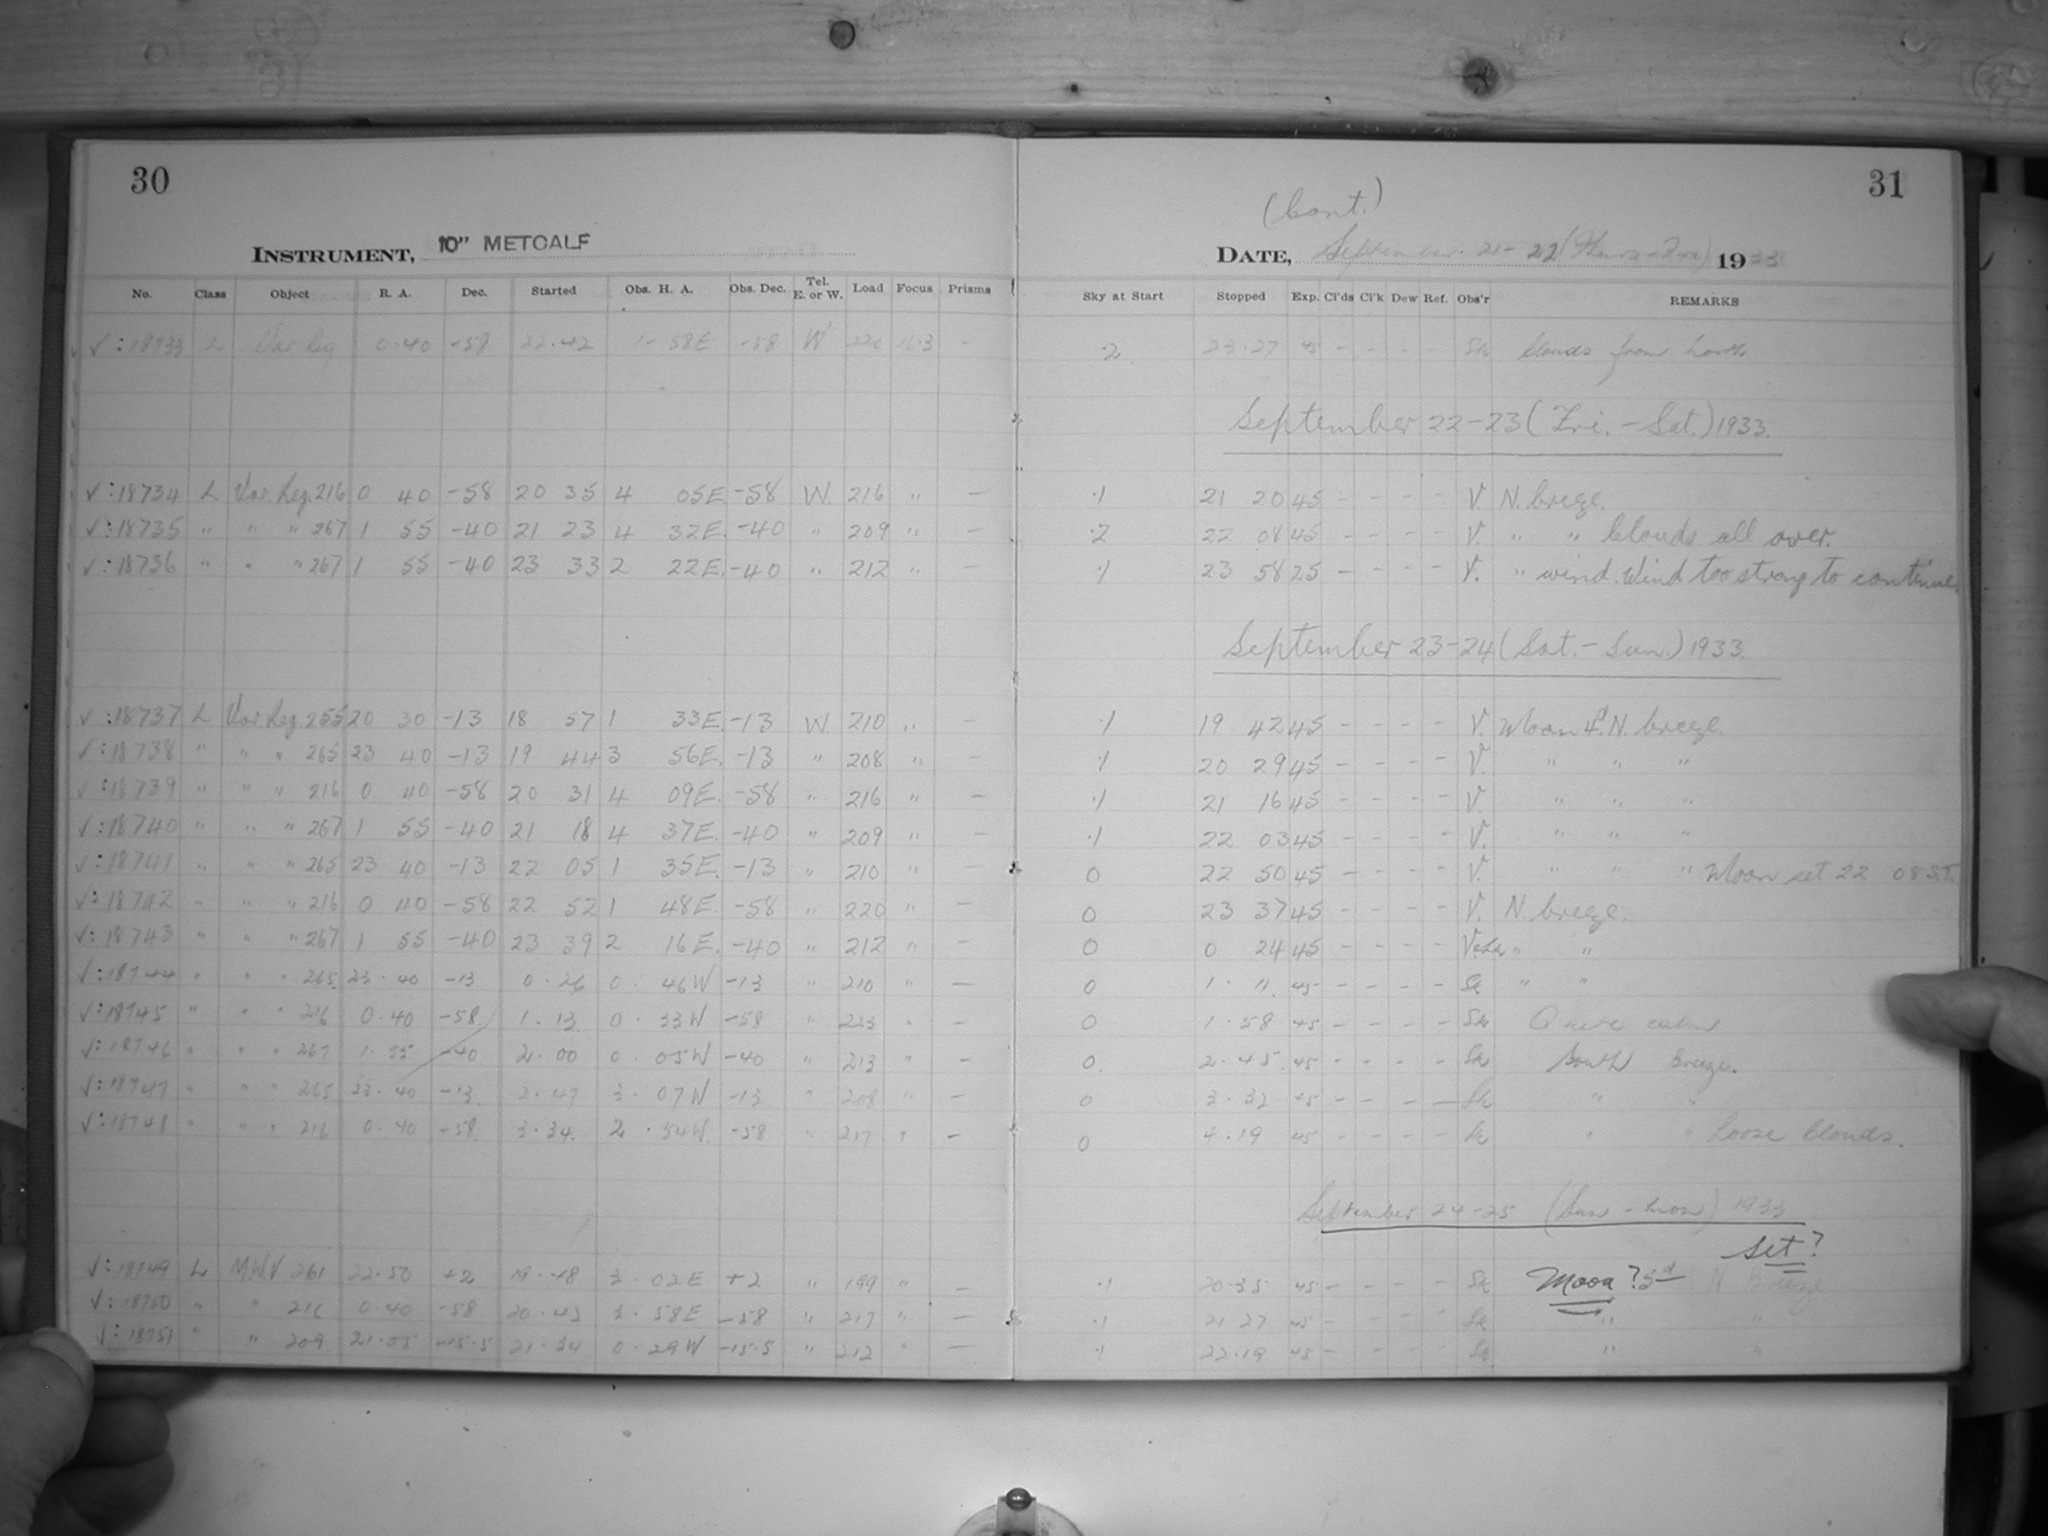 30
INSTRUMENT, 10" METCALF
No. Class Object R. A. Dec. Started Obs. H. A. Obs. Dec. Tel. E. or W. Load Focus Prisms
√:18733 L Var Reg 0.40 -58 22.42 1- 58E -58 W 220 16.3 -
√:18734 L Var. Reg. 216 0 40 -58 20 35 4 05E -58 W. 216 " -
√:18735 " " " 267 1 55 -40 21 23 4 32E. -40 " 209 " -
√:18736 " " " 267 1 55 -40 23 33 2 22E. -40 " 212 " -
√:18737 L Var. Reg 255 20 30 -13 18 57 1 33E. -13 W. 210 " -
√:18738 " " " 265 23 40 -13 19 44 3 56E. -13 " 208 " -
√:18739 " " " 216 0 40 -58 20 31 4 09E. -58 " 216 " -
√:18740 " " " 267 1 55 -40 21 18 4 37E. -40 " 209 " -
√:18741 " " " 265 23 40 -13 22 05 1 35E. -13 " 210 " -
√:18742 " " " 216 0 40 -58 22 52 1 48E. -58 " 220 " -
√:18743 " " " 267 1 55 -40 23 39 2 16E. -40 " 212 " -
√:18744 " " " 265 23.40 -13 0.26 0. 46W -13 " 210 " -
√:18745 " " " 216 0.40 -58 1.13 0. 33W -58 " 223 " -
√:18746 " " " 267 1.55 -40 2.00 0. 05W -40 " 213 " -
√:18747 " " " 265 23.40 -13 2.47 3. 07W -13 " 208 " -
√:18748 " " " 216 0.40 -58 3.34 2. 54W -58 " 217 " -
√:18749 L M.W.V 261 22.50 +2 19.48 3. 02E +2 " 199 " -
√:18750 " " 216 0.40 -58 20.42 3. 58E -58 " 217 " -
√:18751 " " 209 21.05 -15.5 21.34 0. 29W -15.5 " 212 " -
31
(Cont.)
DATE, September 21-22 (Thurs-Fri) 1933
Sky at Start Stopped Exp. Cl'ds Cl'k Dew Ref. Obs'r REMARKS
.2 23.27 45 - - - - Sk Clouds from North
September 22-23 (Fri.-Sat.) 1933.
.1 21 20 45 - - - - V. N. breeze.
.2 22 08 45 - - - - V. " " Clouds all over.
.1 23 58 25 - - - - V. " wind. Wind too strong to continue
September 23-24 (Sat.-Sun.) 1933.
.1 19 42 45 - - - - V. Moon 4d. N. breeze.
.1 20 29 45 - - - - V. " " "
.1 21 16 45 - - - - V. " " "
.1 22 03 45 - - - - V. " " "
0 22 50 45 - - - - V. " " " Moon set 22 08 S.T.
0 23 37 45 - - - - V. N. breeze.
0 0 24 45 - - - - " "
0 1.11 45 - - - - Sk " "
0 1.58 45 - - - - Sk calm
0 2.45 45 - - - - Sk South Breeze.
0 3.32 45 - - - - Sk " "
0 4.19 45 - - - - Sk " " Loose Clouds.
September 24-25 (Sun-Mon) 1933
Set?
.1 20.35 45 - - - - Sk Moon ? 5d N Breeze
.1 21.27 45 - - - - Sk " "
.1 22.19 45 - - - - Sk " "